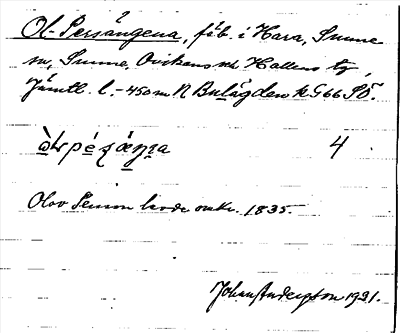 Ol-Persängena, fäb. i Kara, Sunne
sn, Sunne, Ovikens och Hallens tg,
Jämtl. l. - 450 m N Bulägden k G66 SO.
4
Olov Persson levde omkr. 1835.
Johan Andersson 1931.